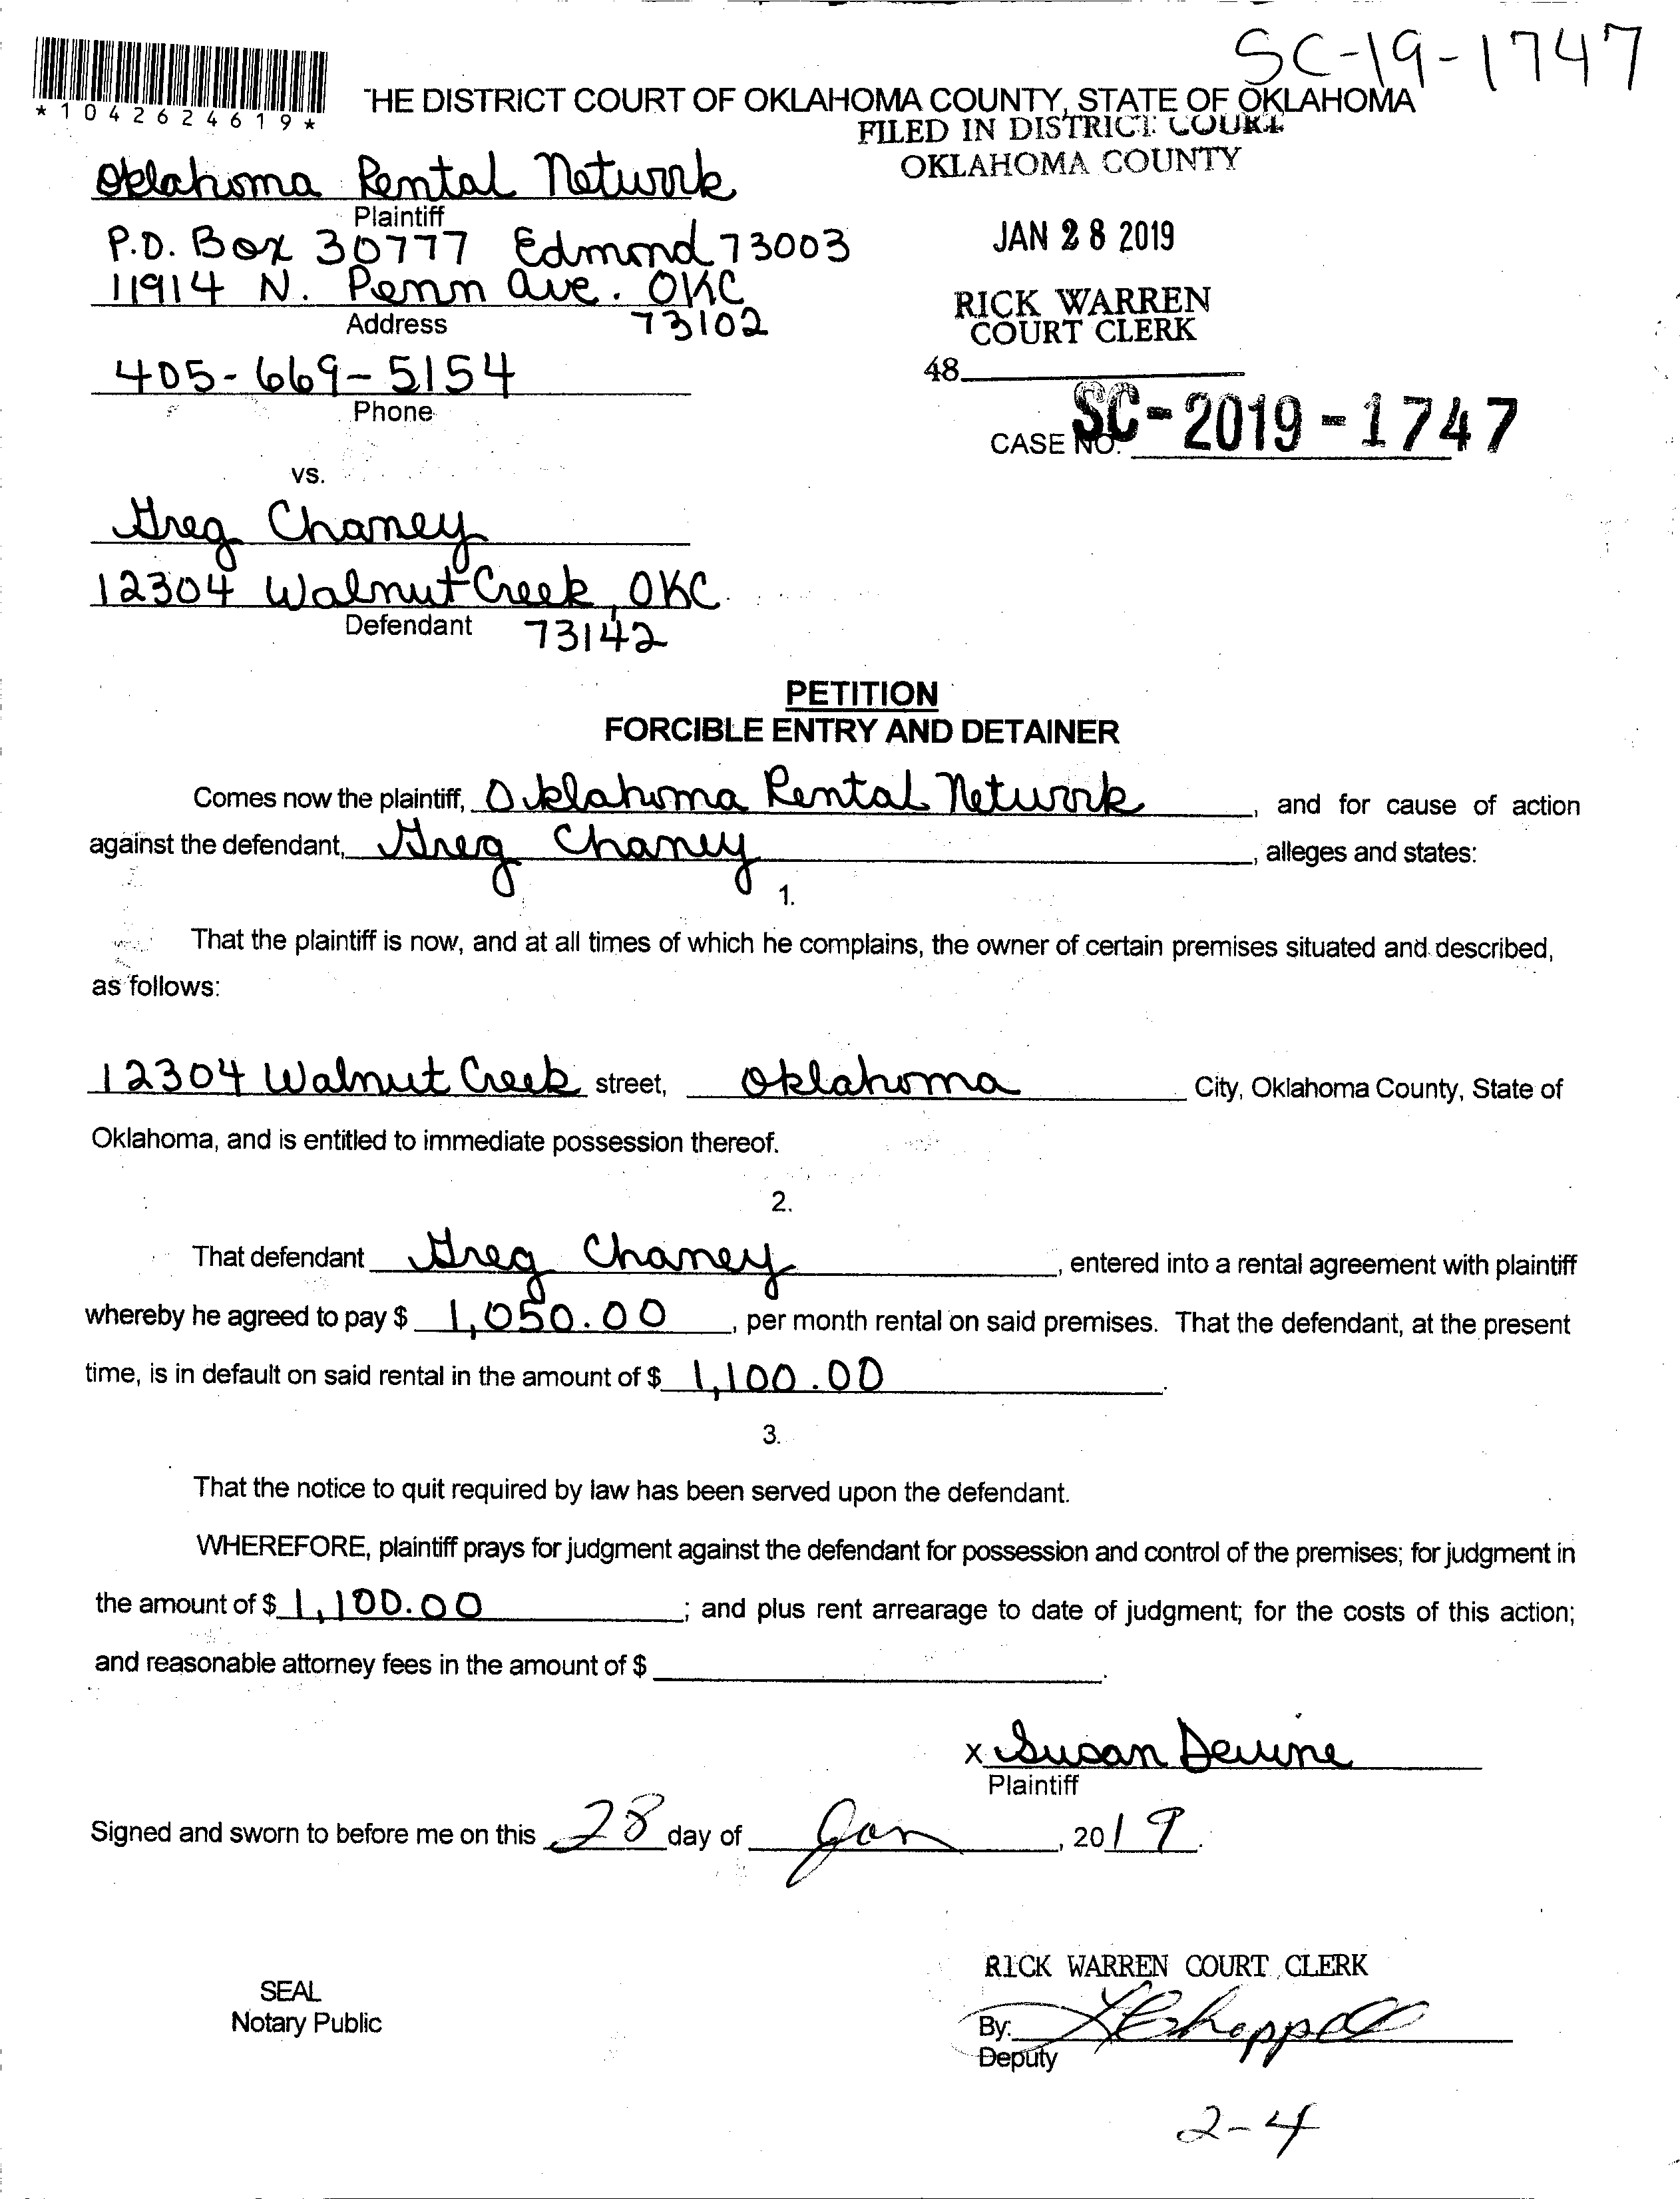 SC-19-1747
*1042624619*
THE DISTRICT COURT OF OKLAHOMA COUNTY, STATE OF OKLAHOMA
FILED IN DISTRICT COURT
OKLAHOMA COUNTY
Oklahoma Rental Network
Plaintiff
P.O. Box 30777 Edmond 73003
11914 N. Penn Ave. OKC
Address 73102
JAN 28 2019
RICK WARREN
COURT CLERK
48
405-669-5154
Phone
CASE NO. SC-2019-1747
vs.
Greg Chaney
12304 Walnut Creek, OKC
Defendant 73142
PETITION
FORCIBLE ENTRY AND DETAINER
Comes now the plaintiff, Oklahoma Rental Network, and for cause of action
against the defendant, Greg Chaney, alleges and states:
1.
That the plaintiff is now, and at all times of which he complains, the owner of certain premises situated and described,
as follows:
12304 Walnut Creek street, Oklahoma City, Oklahoma County, State of
Oklahoma, and is entitled to immediate possession thereof.
2.
That defendant Greg Chaney, entered into a rental agreement with plaintiff
whereby he agreed to pay $ 1,050.00, per month rental on said premises. That the defendant, at the present
time, is in default on said rental in the amount of $ 1,100.00.
3.
That the notice to quit required by law has been served upon the defendant.
WHEREFORE, plaintiff prays for judgment against the defendant for possession and control of the premises; for judgment in
the amount of $ 1,100.00; and plus rent arrearage to date of judgment; for the costs of this action;
and reasonable attorney fees in the amount of $ .
x Susan Devine
Plaintiff
Signed and sworn to before me on this 28 day of Jan, 2019.
RICK WARREN COURT CLERK
SEAL
Notary Public
By:
Deputy
2-4